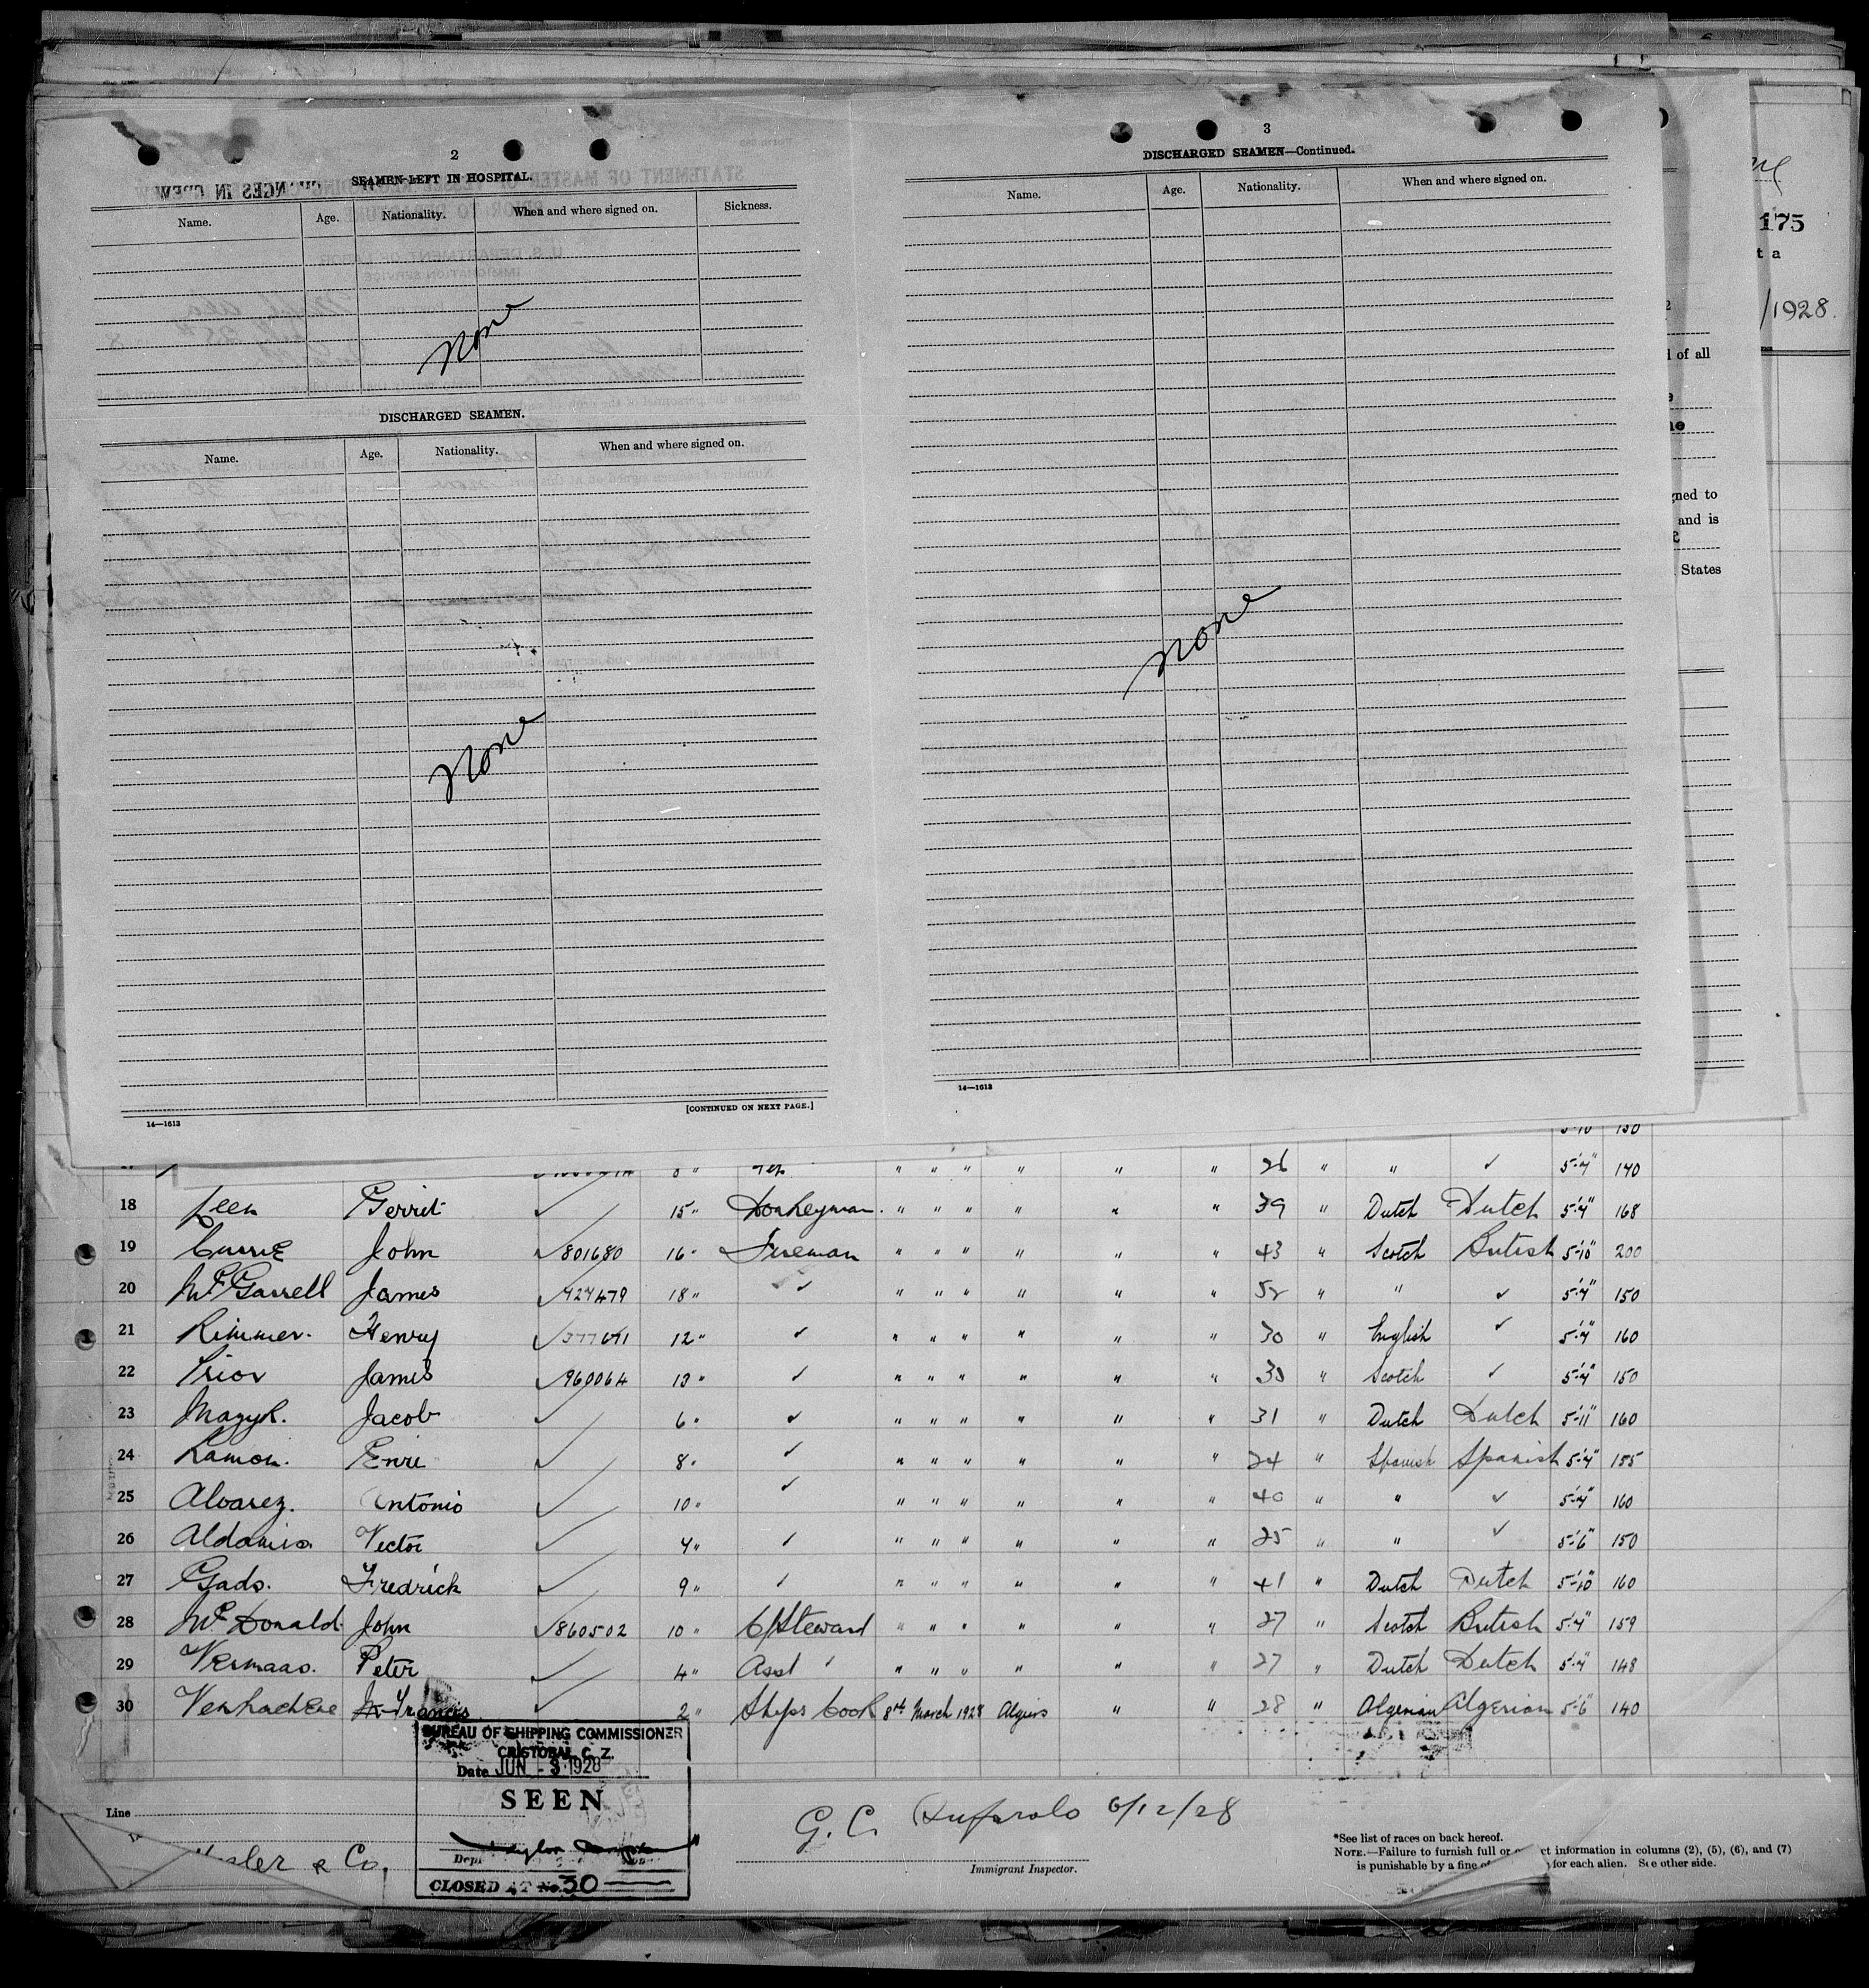 2
SEAMEN LEFT IN HOSPITAL.
Name. Age. Nationality. When and where signed on. Sickness.
None
DISCHARGED SEAMEN.
Name. Age. Nationality. When and where signed on.
None
[CONTINUED ON NEXT PAGE.]
14—1613
3
DISCHARGED SEAMEN—Continued.
Name. Age. Nationality. When and where signed on.
None
14—1613
175
t a
/1928.
of all
gned to
and is
States
5'-10" 150
" " " " " " 26 " " ✓ 5'-4" 140
18 Gerrit ✓ 15 " Donkeyman. " " " " " " 39 " Dutch Dutch 5'-4" 168
19 Currie John ✓801680 16 " Fireman " " " " " " 43 " Scotch British 5'-10" 200
20 McGarrell James ✓424479 18 " ✓ " " " " " " 52 " " ✓ 5'-4" 150
21 Rimmer. Henry ✓377671 12 " ✓ " " " " " " 30 " English ✓ 5'-4" 160
22 Prior James ✓960064 13 " ✓ " " " " " " 30 " Scotch ✓ 5'-4" 150
23 Jacob ✓ 6 " ✓ " " " " " " 31 " Dutch Dutch 5'-11" 160
24 Ramon. Enri ✓ 8 " ✓ " " " " " " 24 " Spanish Spanish 5'-4" 155
25 Alvarez. Antonio ✓ 10 " ✓ " " " " " " 40 " " ✓ 5'-4" 160
26 Victor ✓ 4 " ✓ " " " " " " 25 " " ✓ 5'-6" 150
27 Gado. Fredrick ✓ 9 " ✓ " " " " " " 41 " Dutch Dutch 5'-10" 160
28 McDonald. John ✓860502 10 " C/Steward " " " " " " 27 " Scotch British 5'-4" 159
29 Vermaas. Peter ✓ 4 " Asst ' " " " " " " 27 " Dutch Dutch 5'-4" 148
30 Francis ✓ 2 " Ships Cook 8th March 1928 Algiers " " 28 " Algerian Algerian 5'-6" 140
BUREAU OF SHIPPING COMMISSIONER
CRISTOBAL, C. Z.
Date JUN - 3 1928
SEEN
CLOSED AT No. 30
Line
& Co.
G. C. 6/12/28
Immigrant Inspector.
*See list of races on back hereof.
NOTE.—Failure to furnish full or ct information in columns (2), (5), (6), and (7)
is punishable by a fine of for each alien. See other side.